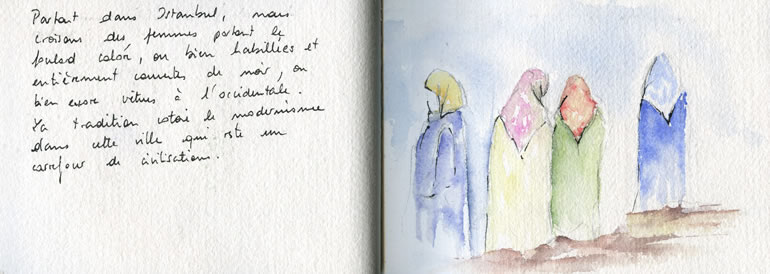 Partout dans Istanbul, nous
croisons des femmes portant le
foulard coloré, ou bien habillées et
entièrement couvertes de noir, ou
bien encore vêtues à l'occidentale.
La tradition cotoie le modernisme
dans cette ville qui reste un
carrefour de civilisations.